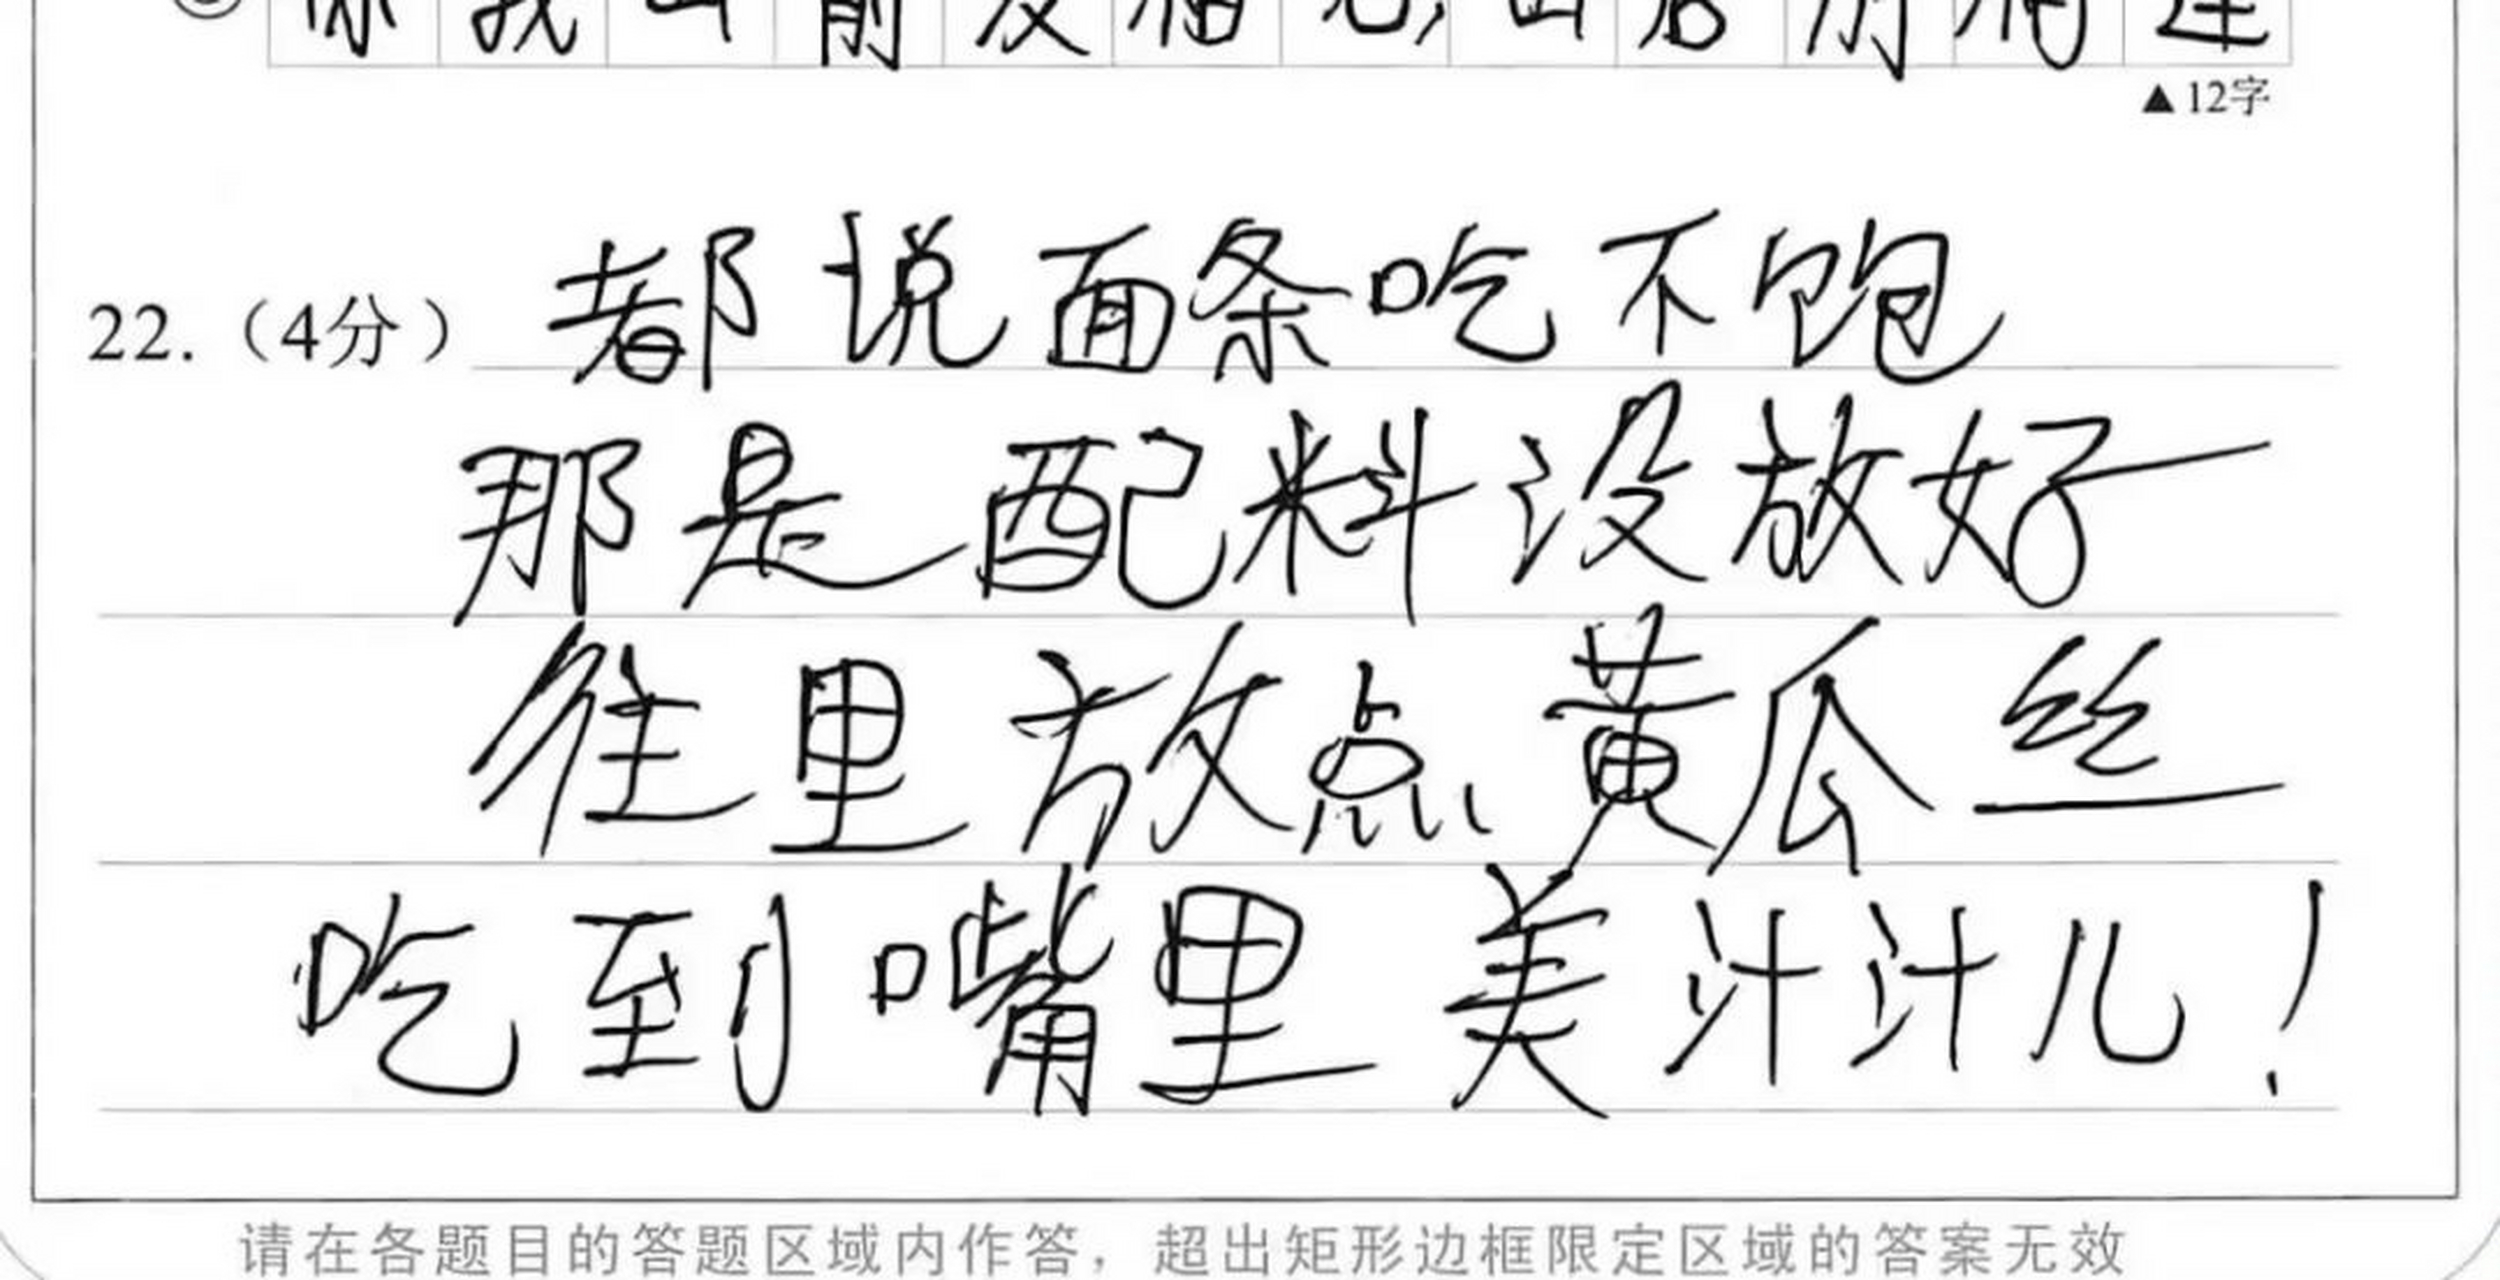 ▲12字
22.（4分）都说面条吃不饱
那是配料没放好
往里放点黄瓜丝
吃到嘴里美汁汁儿！
请在各题目的答题区域内作答，超出矩形边框限定区域的答案无效